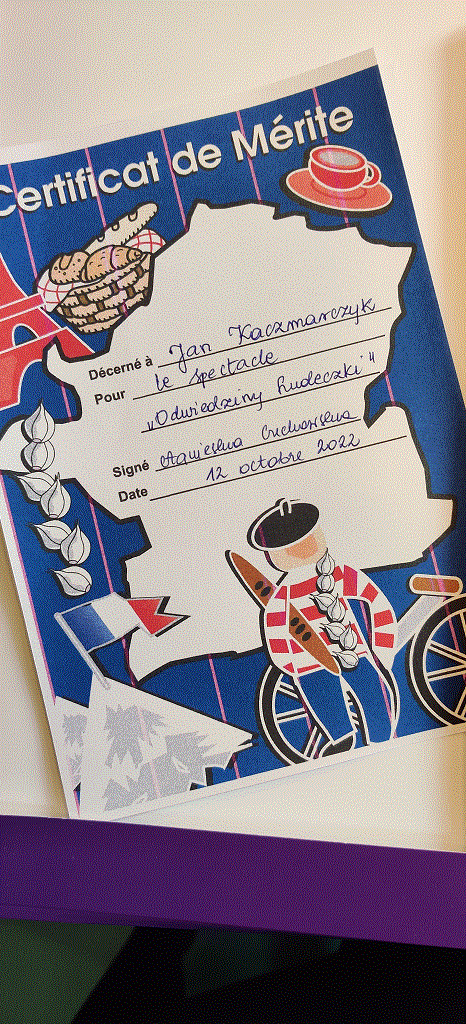 Certificat de Mérite
Décerné à Jan Kaczmarczyk
Pour le spectacle
„Odwiedziny Ludeczki"
Signé
Date 12 octobre 2022